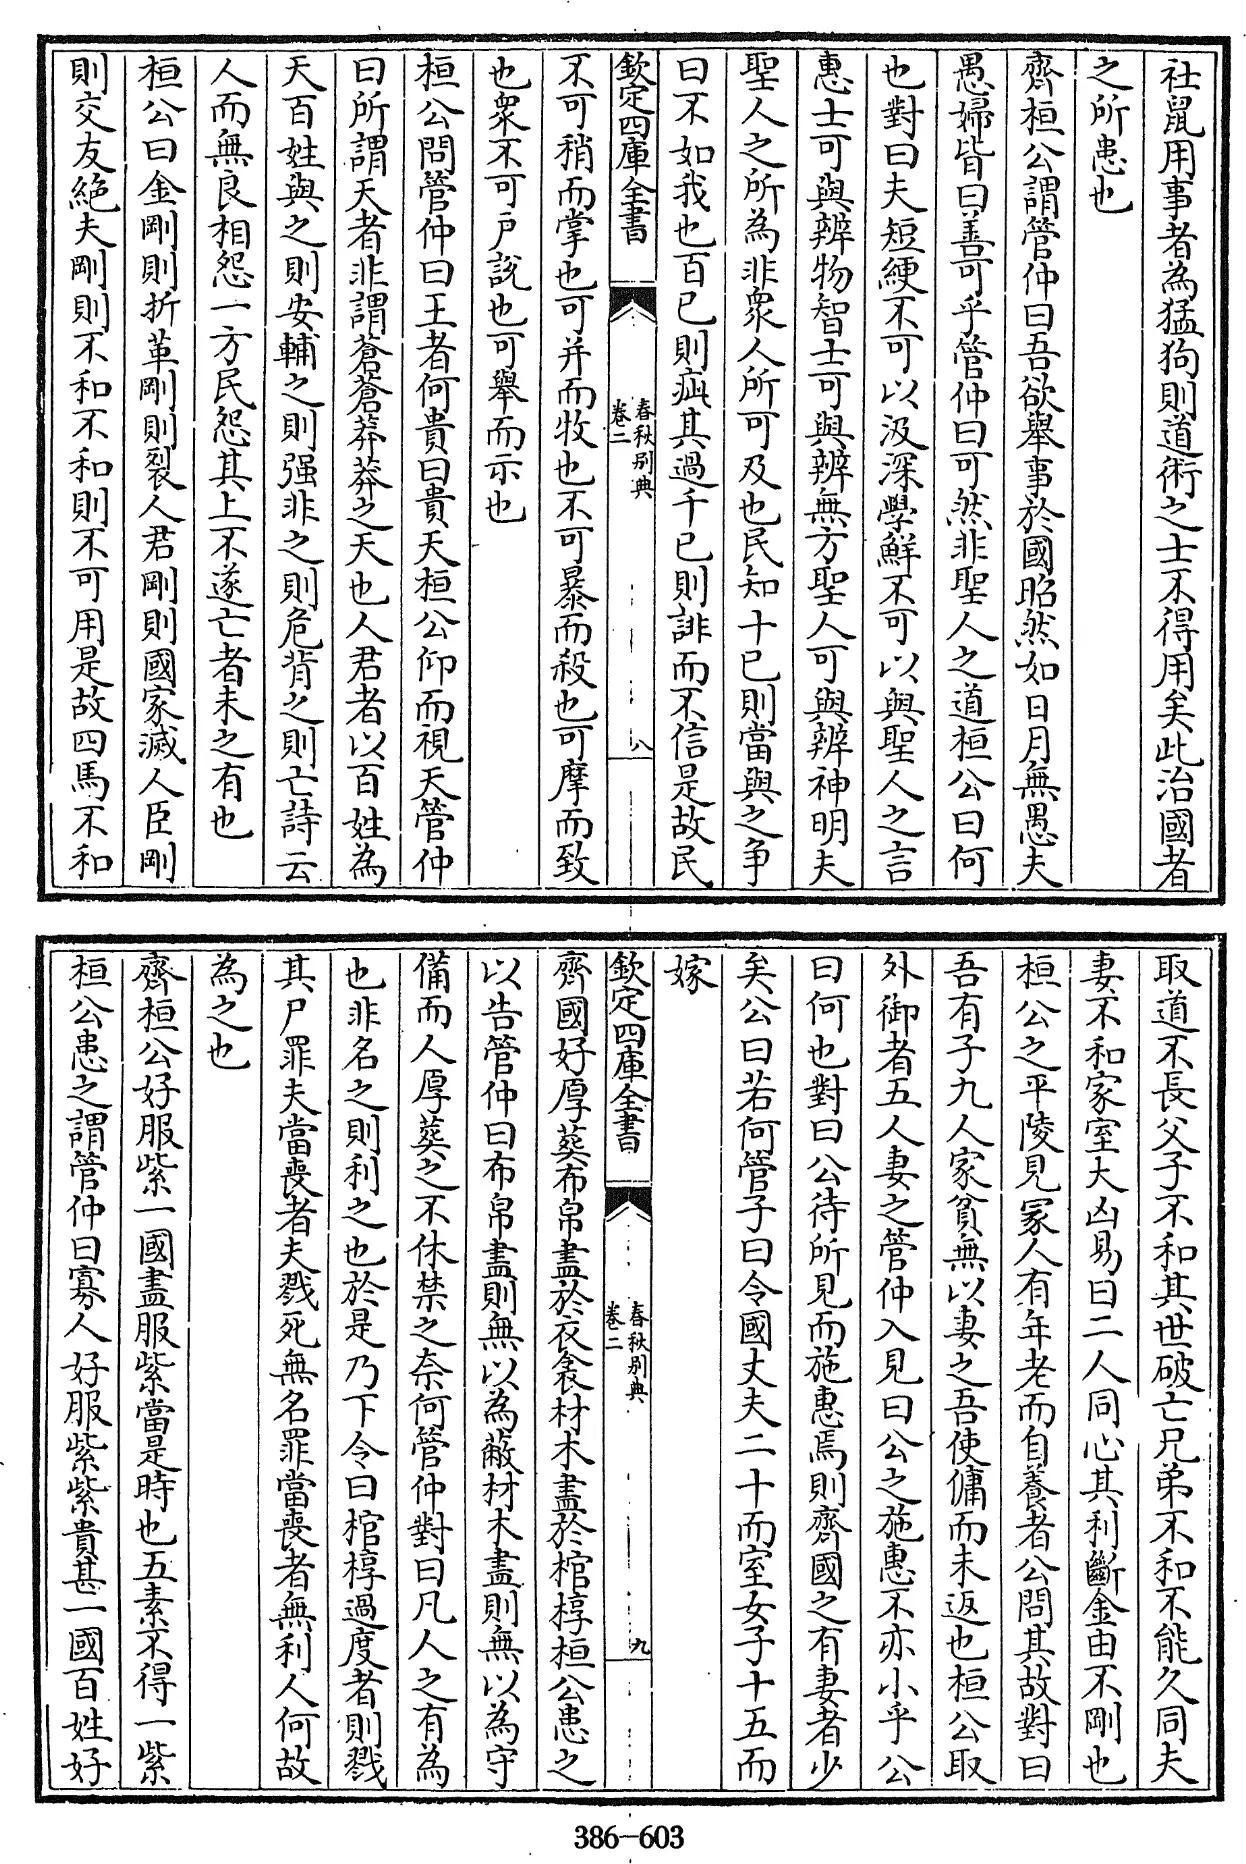 社鼠用事者為猛狗則道術之士不得用矣此治國者
之所患也
齊桓公謂管仲曰吾欲舉事於國昭然如日月無愚夫
愚婦皆曰善可乎管仲曰可然非聖人之道桓公曰何
也對曰夫短綆不可以汲深學鮮不可以與聖人之言
惠士可與辨物智士可與辨無方聖人可與辨神明夫
聖人之所為非衆人所可及也民知十已則當與之争
曰不如我也百已則疵其過千已則誹而不信是故民
欽定四庫全書
春秋別典
卷二
八
不可稍而掌也可并而牧也不可暴而殺也可摩而致
也衆不可戶說也可舉而示也
桓公問管仲曰王者何貴曰貴天桓公仰而視天管仲
曰所謂天者非謂蒼蒼莽莽之天也人君者以百姓為
天百姓與之則安輔之則强非之則危背之則亡詩云
人而無良相怨一方民怨其上不遂亡者未之有也
桓公曰金剛則折革剛則裂人君剛則國家滅人臣剛
則交友絶夫剛則不和不和則不可用是故四馬不和
取道不長父子不和其世破亡兄弟不和不能久同夫
妻不和家室大凶易曰二人同心其利斷金由不剛也
桓公之平陵見冡人有年老而自養者公問其故對曰
吾有子九人家貧無以妻之吾使傭而未返也桓公取
外御者五人妻之管仲入見曰公之施惠不亦小乎公
曰何也對曰公待所見而施惠焉則齊國之有妻者少
矣公曰若何管子曰令國丈夫二十而室女子十五而
嫁
欽定四庫全書
春秋別典
卷二
九
齊國好厚葬布帛盡於衣衾材木盡於棺椁桓公患之
以告管仲曰布帛盡則無以為蔽材木盡則無以為守
備而人厚葬之不休禁之奈何管仲對曰凡人之有為
也非名之則利之也於是乃下令曰棺椁過度者則戮
其尸罪夫當喪者夫戮死無名罪當喪者無利人何故
為之也
齊桓公好服紫一國盡服紫當是時也五素不得一紫
桓公患之謂管仲曰寡人好服紫紫貴甚一國百姓好
386-603